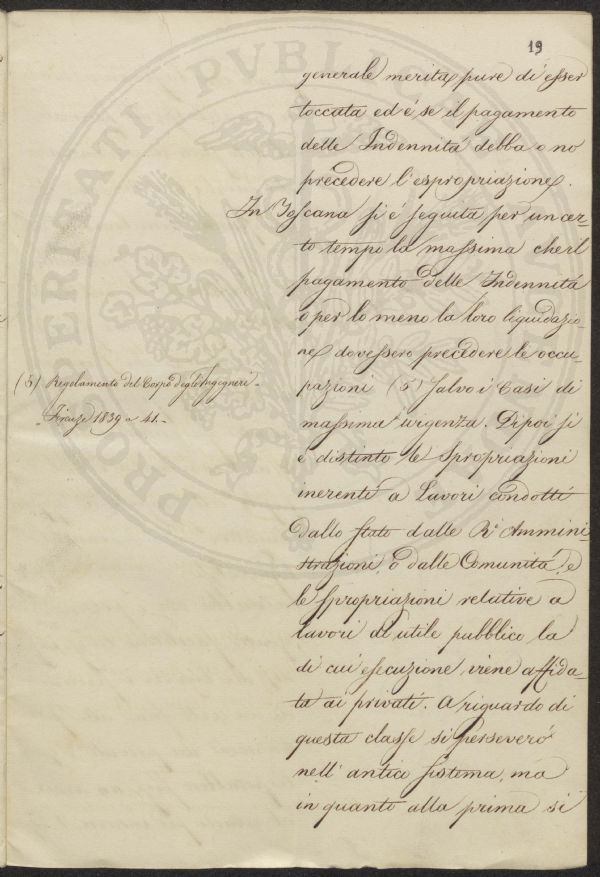 19
generale merita pure di esser
toccata ed é se il pagamento
delle Indennitá debba o no
precedere l'espropriazione.
In Toscana si é seguita per un cer-
to tempo la massima che il
pagamento delle Indennitá
o per lo meno la loro liquidazio-
ne dovessero precedere le occu-
pazioni (5) salvo i casi di
massima urgenza. Dipoi si
é distinto le Spropriazioni
inerenti a Lavori condotti
dallo Stato dalle Re Ammini-
strazioni, o dalle Comunitá, e
le Spropriazioni relative a
lavori di utile pubblico la
di cui esecuzione viene affida-
ta ai privati. A riguardo di
questa classe si perseveró
nell'antico sistema, ma
in quanto alla prima si
(5) Regolamento del Corpo degl'Ingegneri -
Firenze 1839 a 41. -
PROSPERITATI PVBLICAE